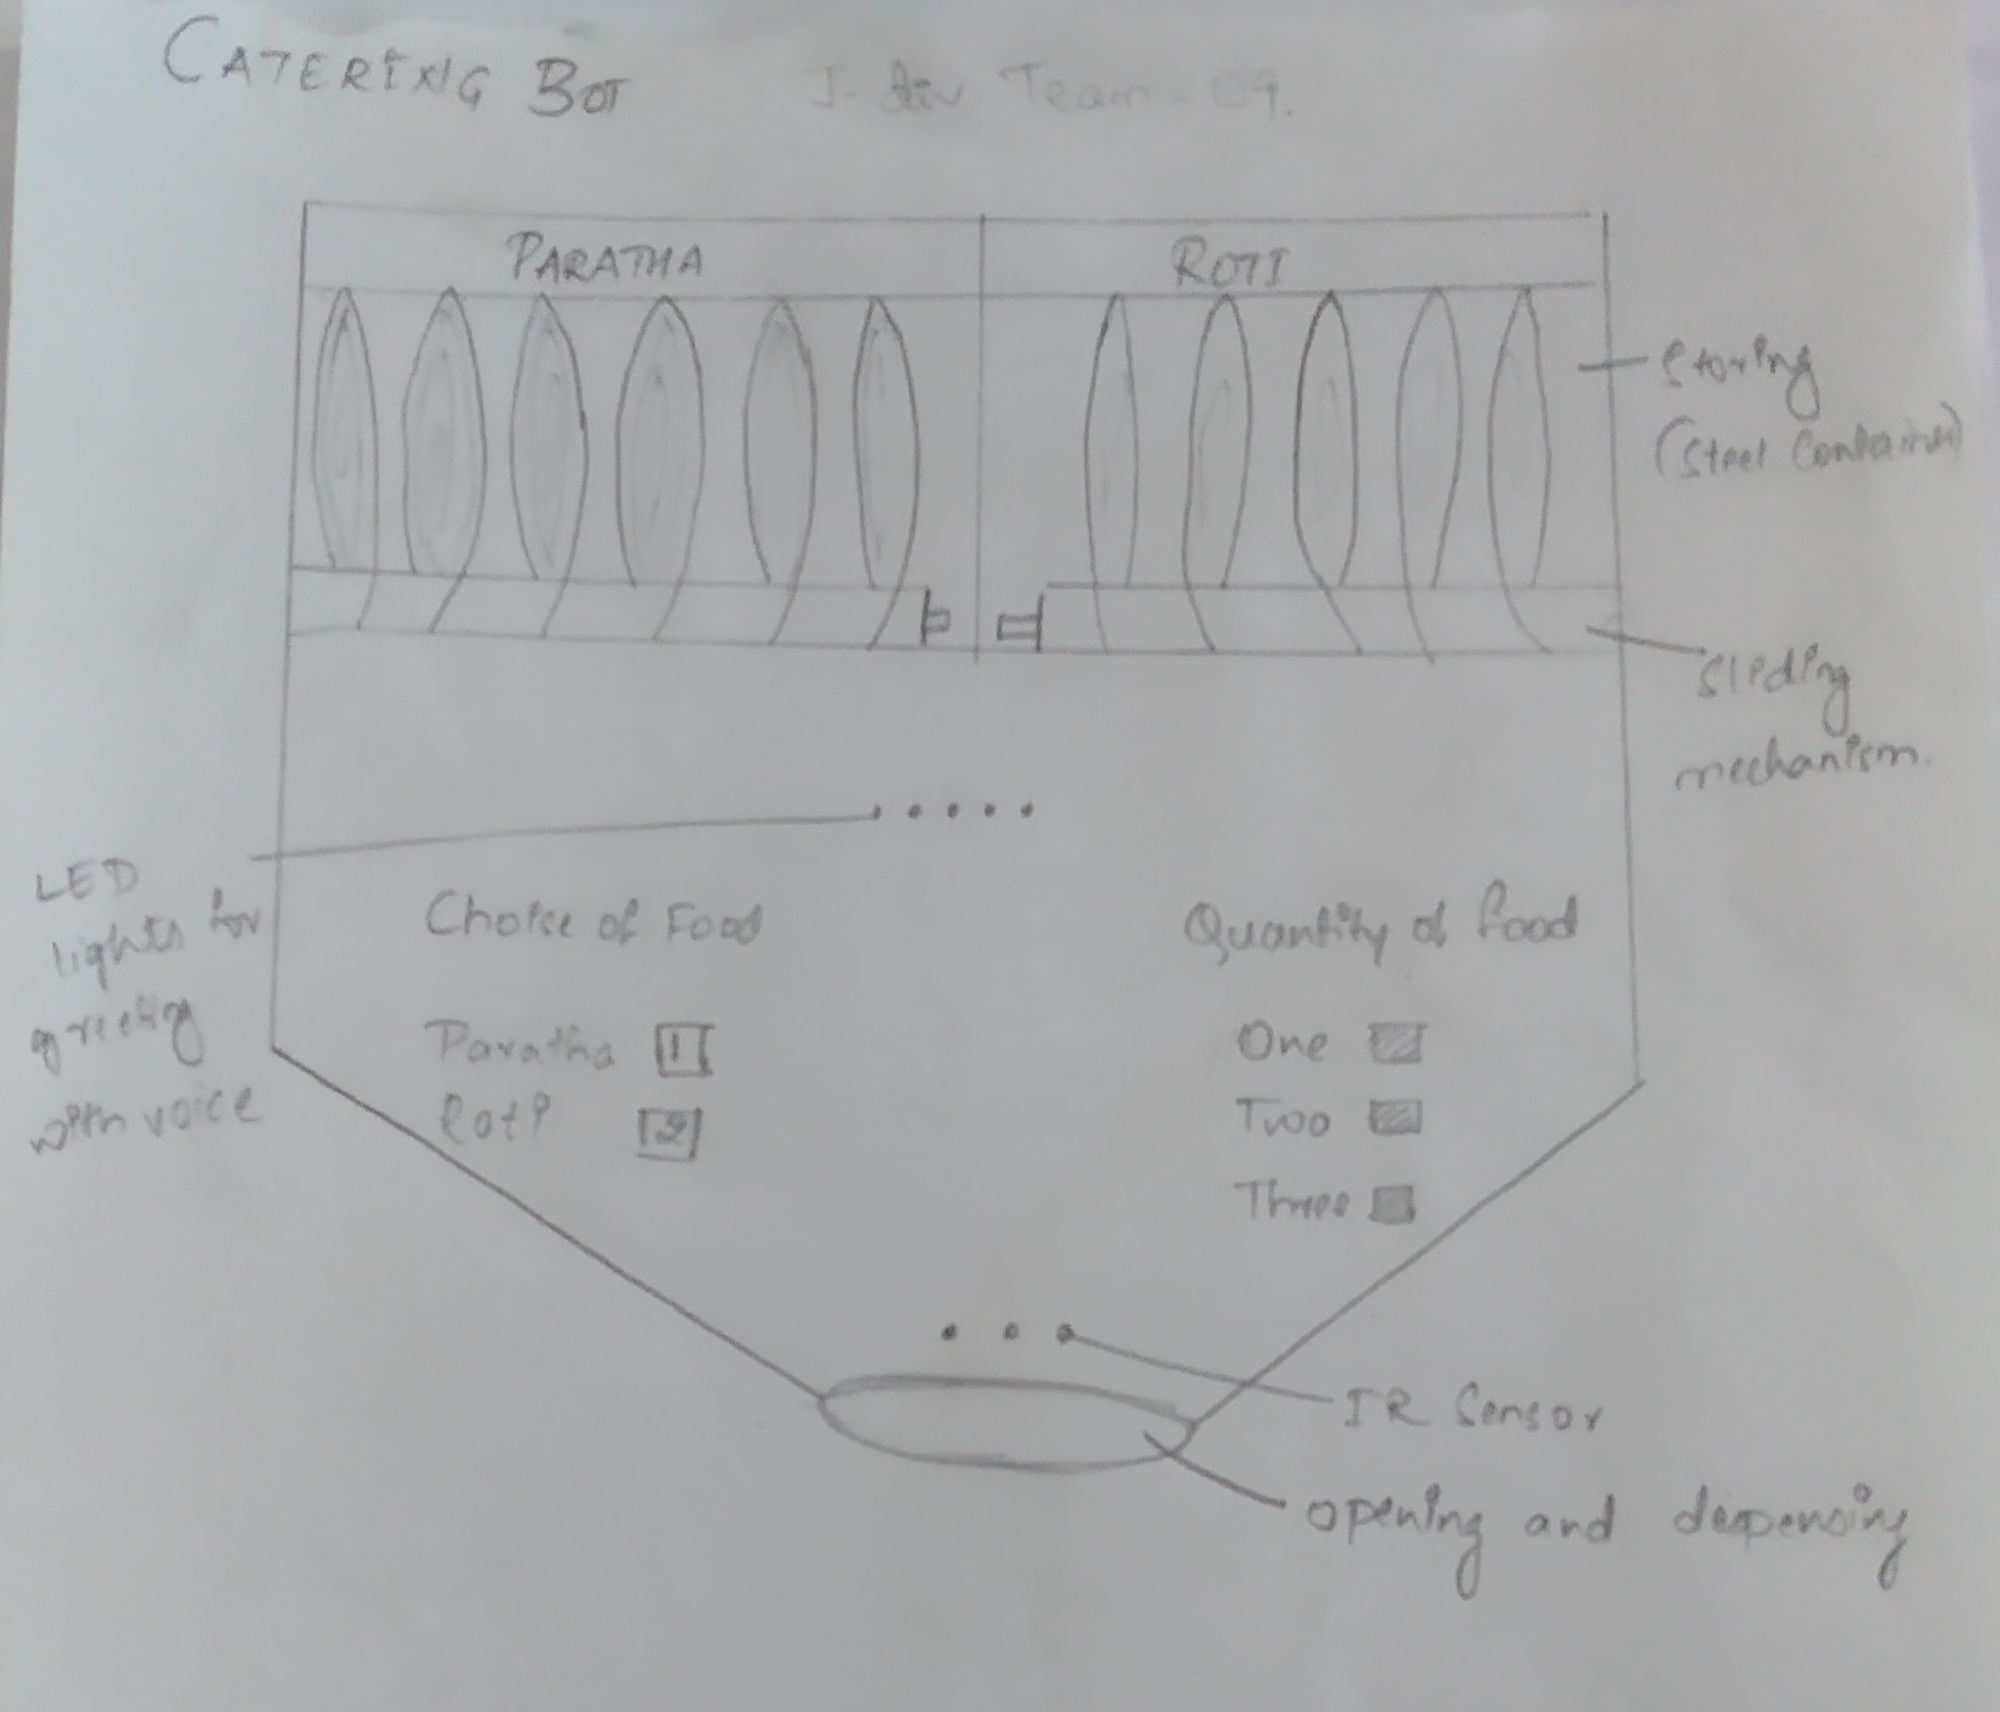 CATERING BOT J-div Team-09.
PARATHA ROTI
Storing
(Steel Container)
Sliding
mechanism.
LED
lights for
greeting
with voice
Choice of Food
Paratha 1
Roti 2
Quantity of food
One
Two
Three
IR Sensor
opening and dispensing